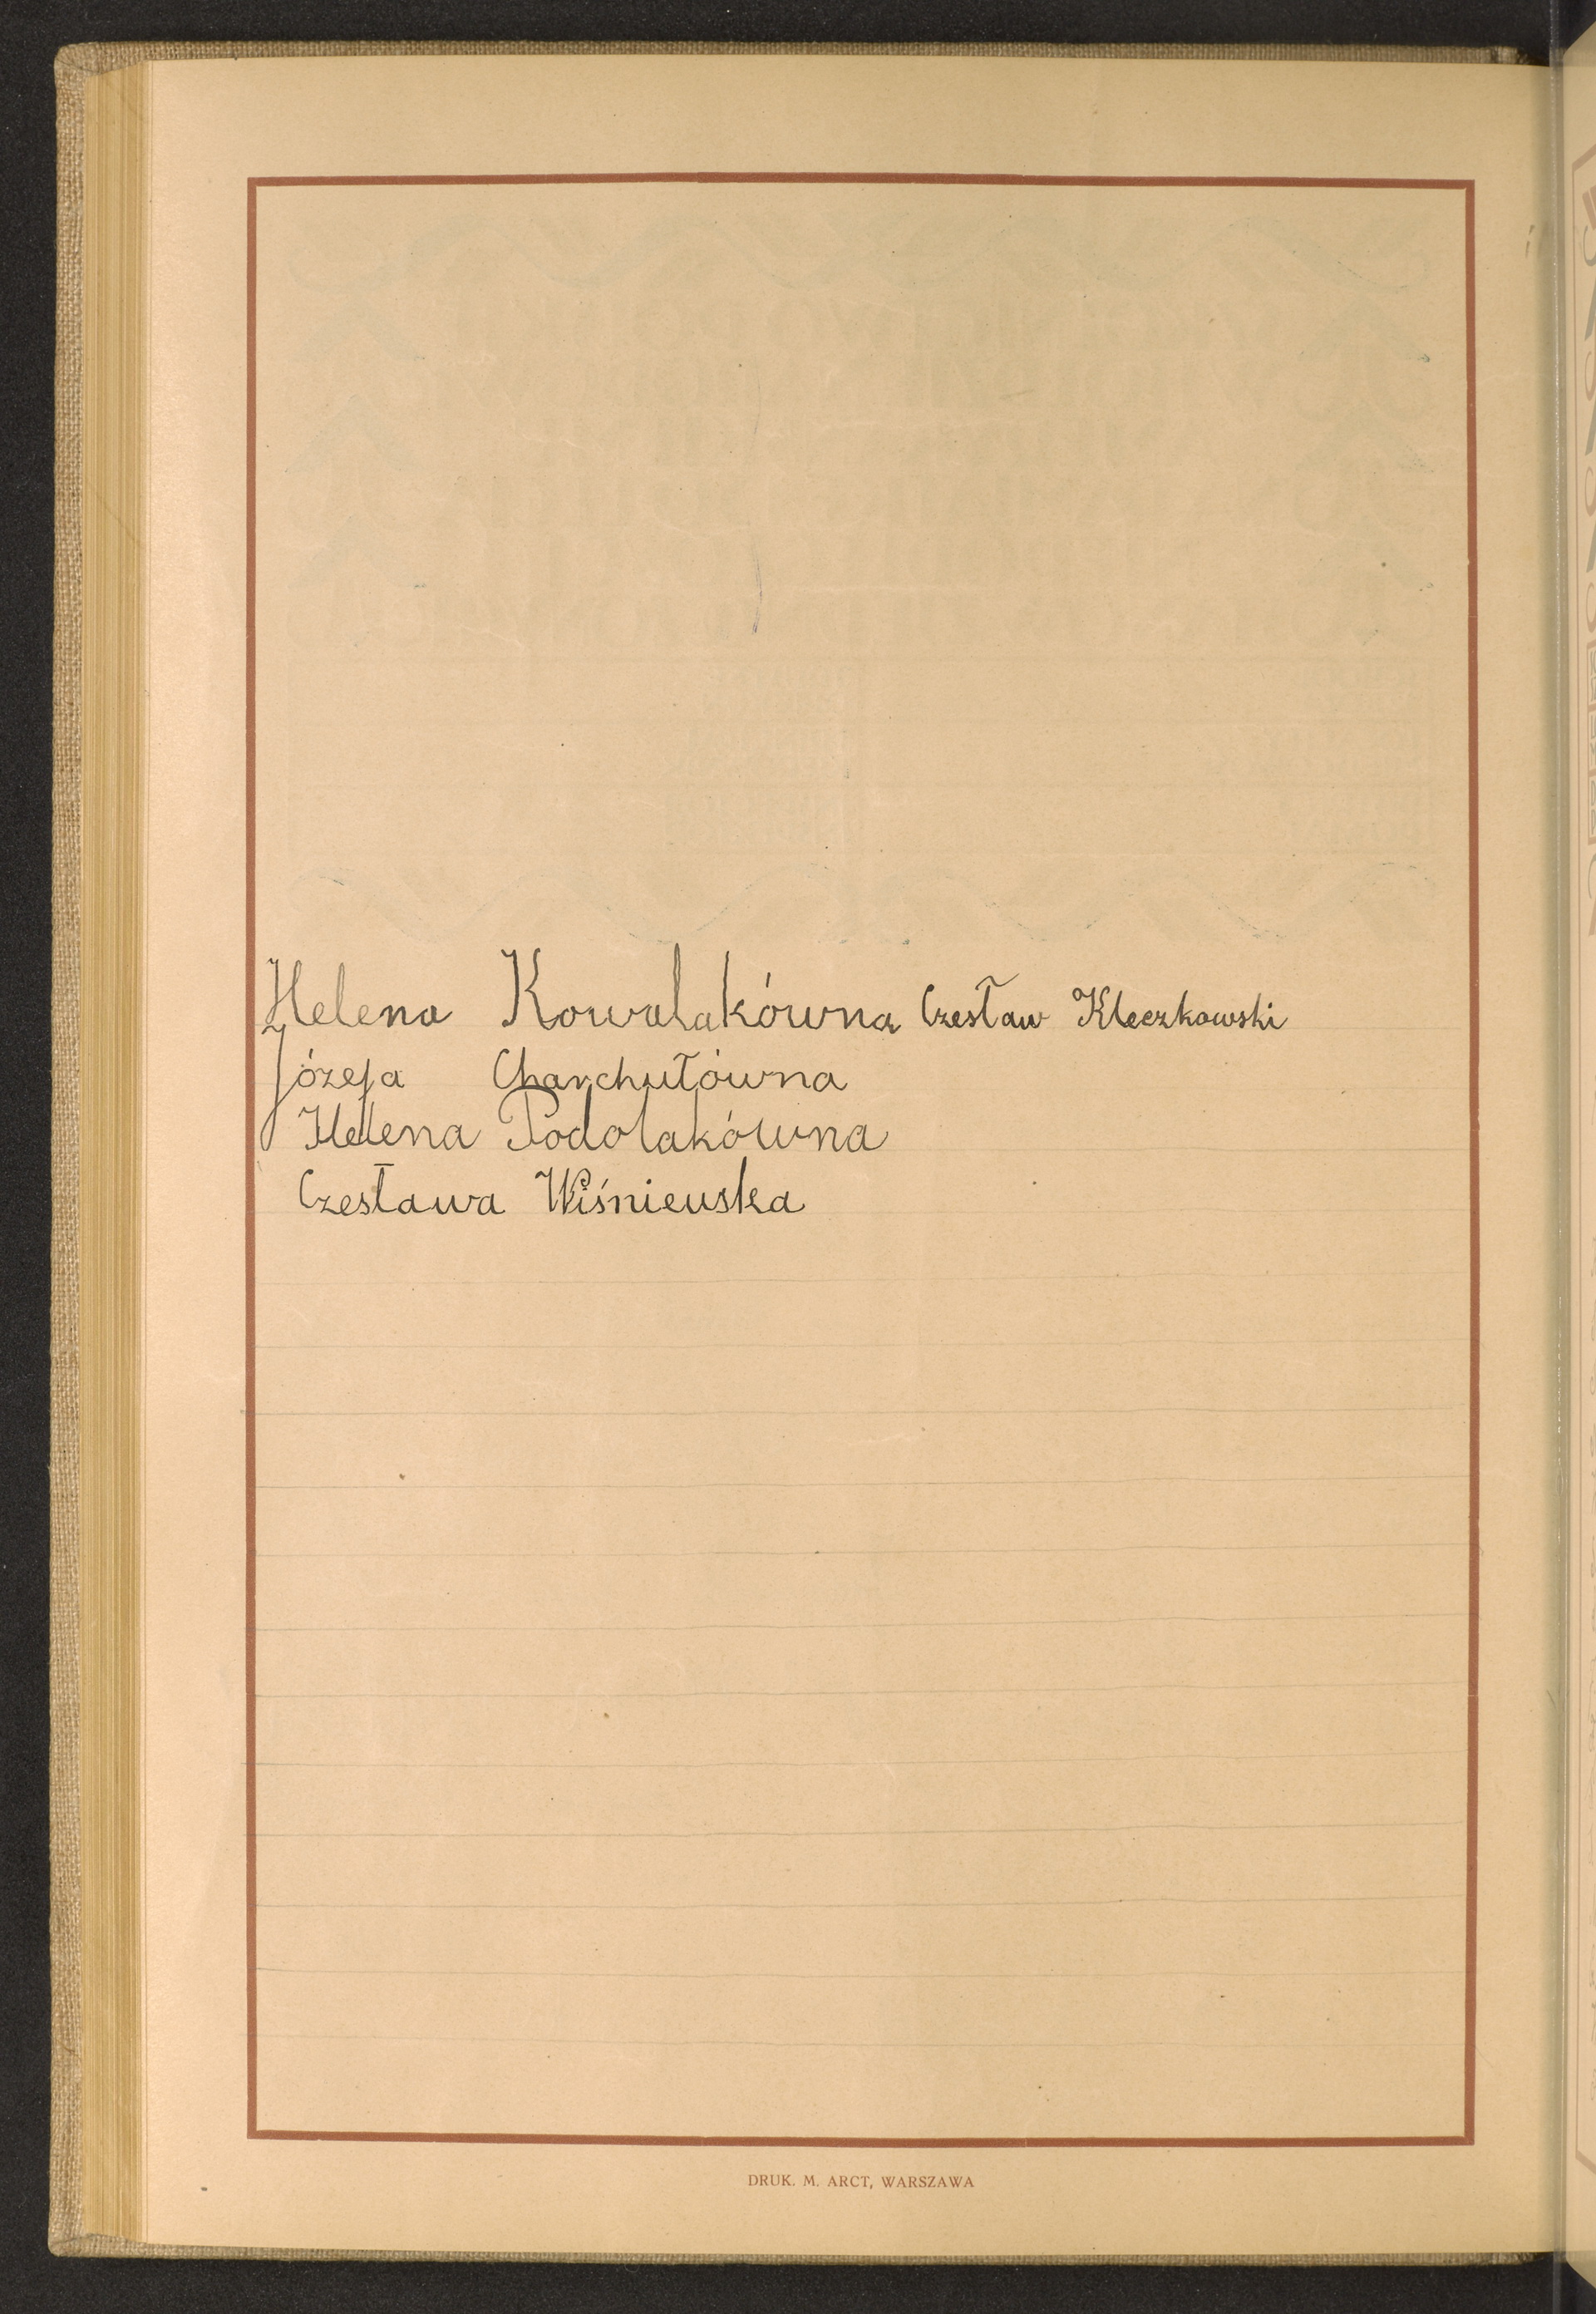 Helena Kowalakówna Czesław Kleczkowski
Józefa Charchułówna
Helena Podolakówna
Czesława Wiśniewska
DRUK. M. ARCT, WARSZAWA